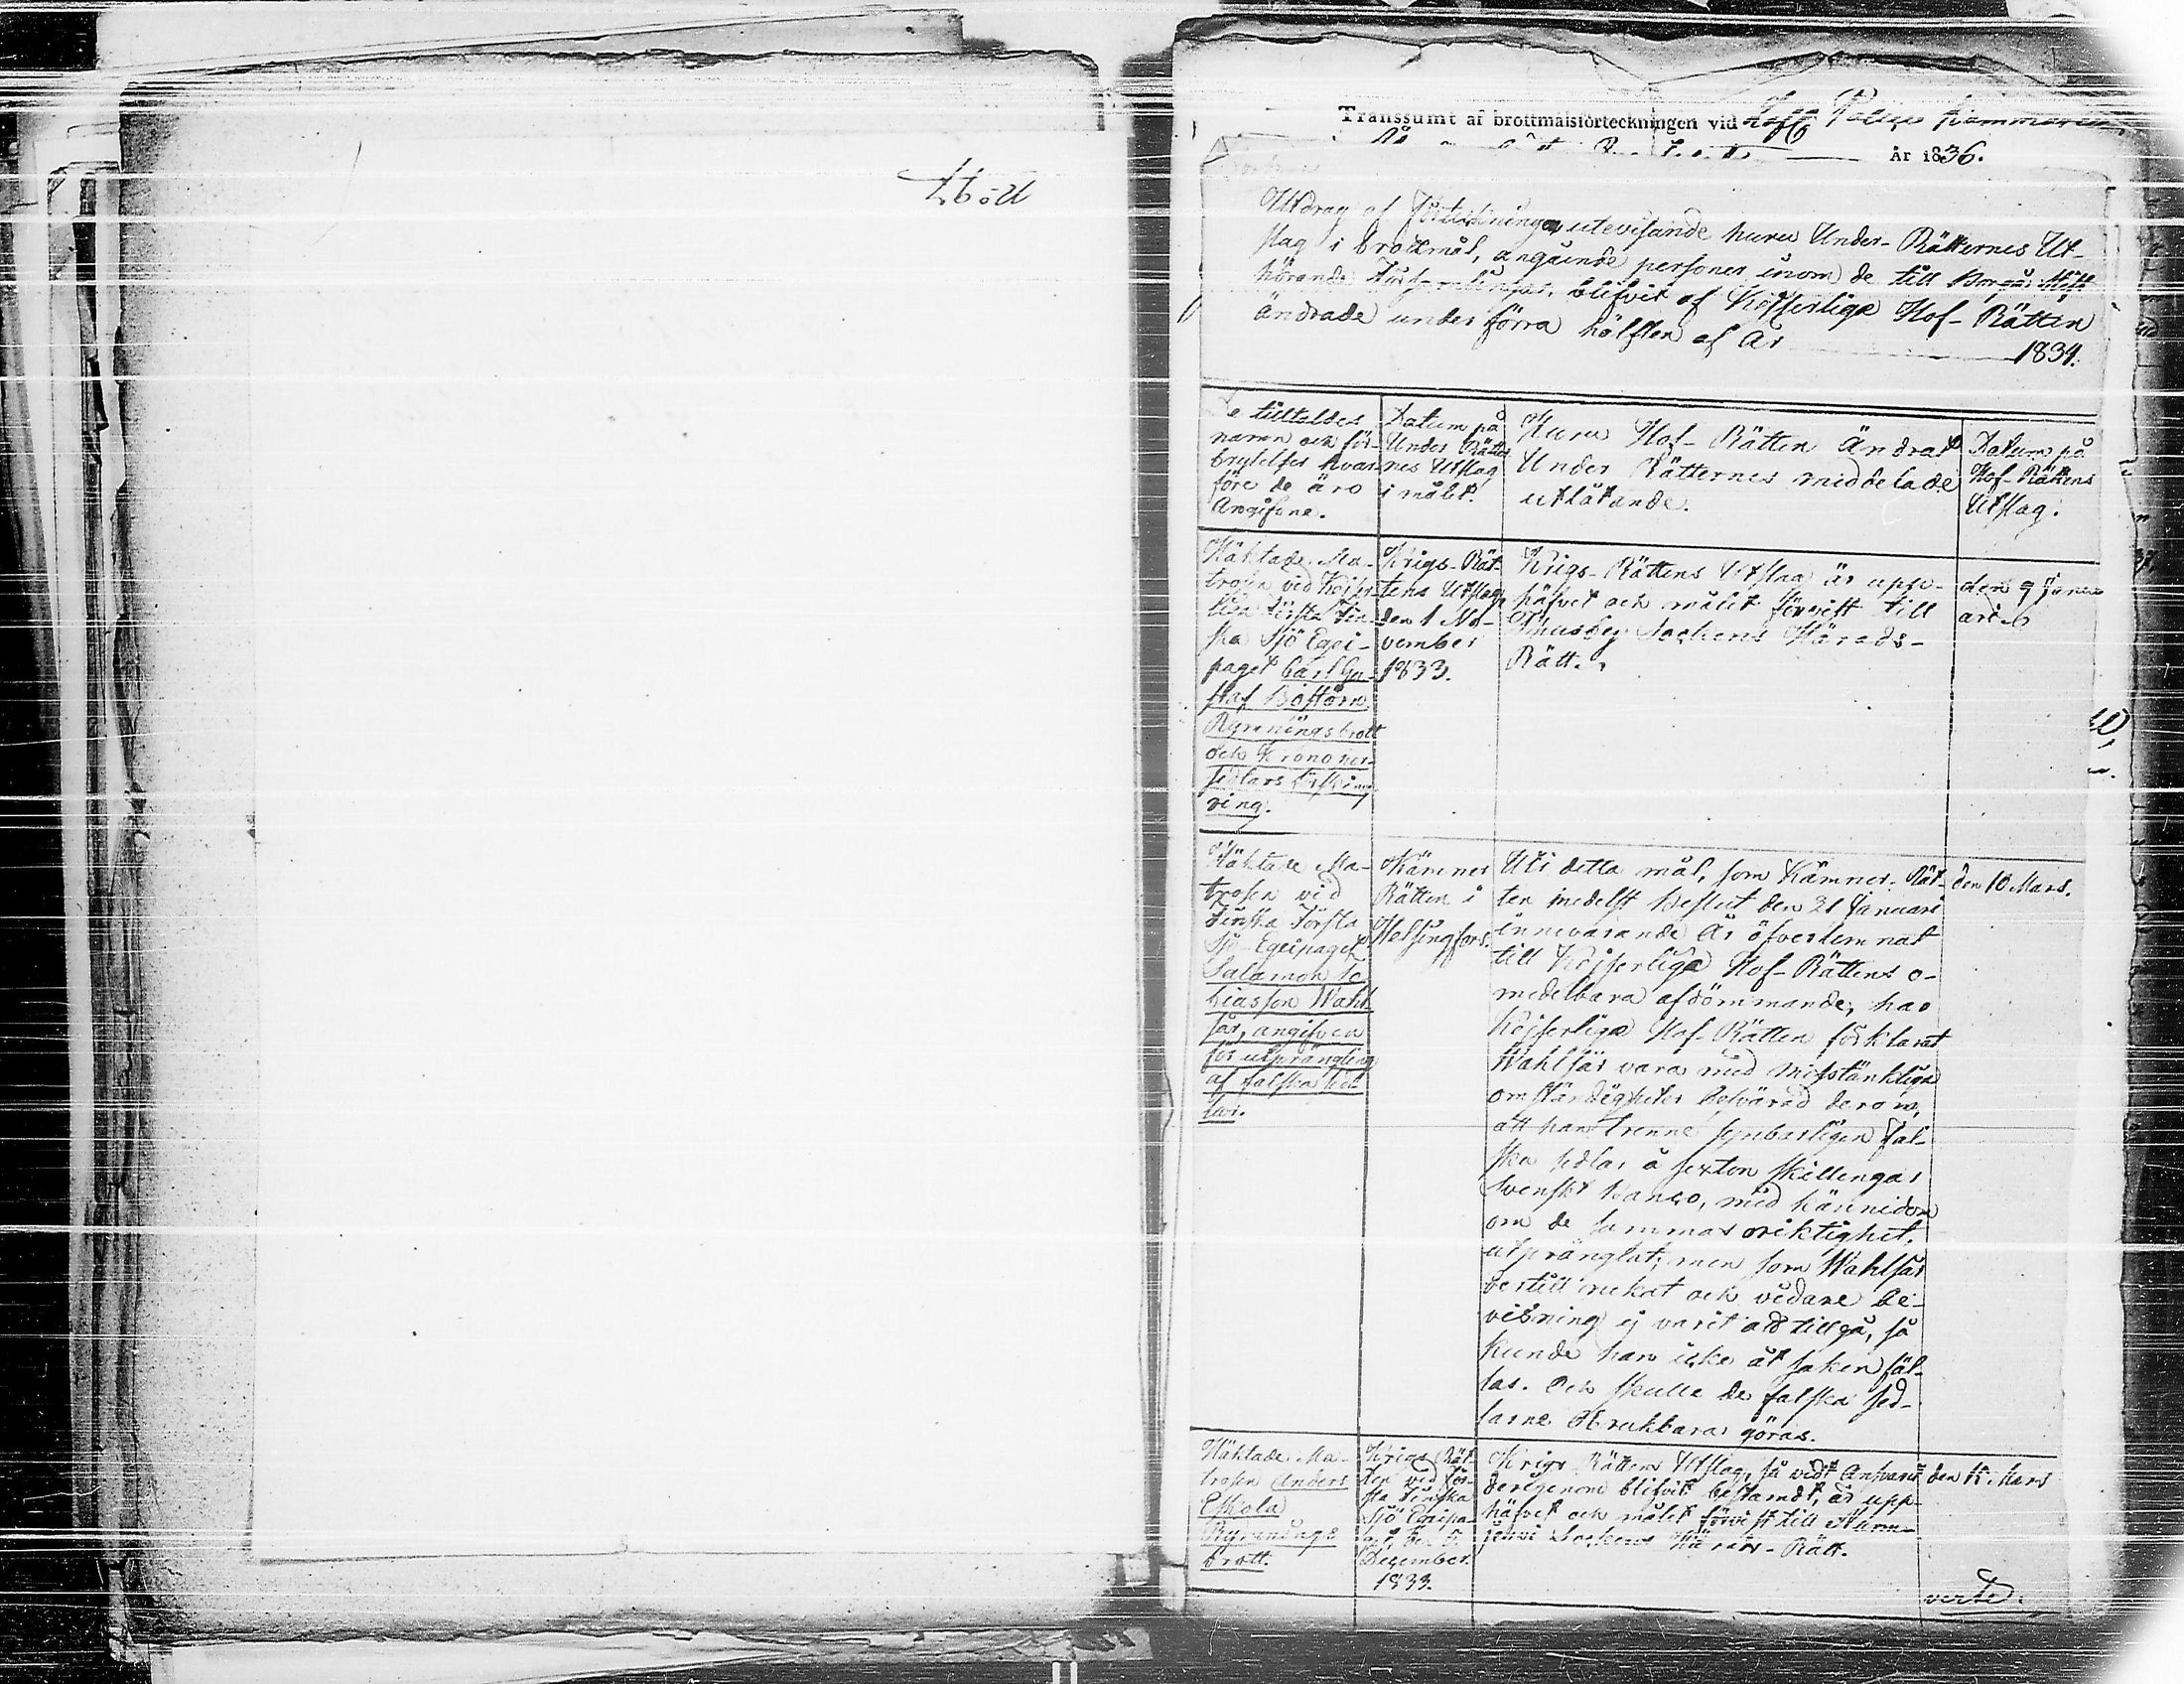 Transsumt af brottmålsförteckningen vid Hfg Polis kammaren
År 1836.
Utdrag af förteckningen utevisande huru Under-Rätternes Ut-
slag i brottmål, angående personer inom de till Borgå Stift
hörande blifvit af Kejserliga Hof-Rätten
ändrade under förra hälften af År 1834.
De tilltaldes
namn och för-
brytelser hvar-
före de äro
Angifvne.
Datum på
Under Rätter-
nes Utslag
i målet.
Huru Hof-Rätten Ändrat
Under Rätternes meddelade
utlåtande.
Datum på
Hof-Rättens
Utslag.
Häktade Ma-
trosen vid Kejser-
liga Första Fin-
ska Sjö Eqei-
paget Carl Gu-
staf Boström
Rymningsbrott
och Krono per-
sedlars förskin-
ring.
Krigs-Rät-
tens Utslag
den 1 No-
vember
1833.
Krigs-Rättens Utslag är upp-
häfvet och målet förvist till
Thusby Sockens Härads-
Rätt.
den 9 Janu-
arii
Häktade Ma-
trosen vid
Finska Första
Sjö-Eqeipaget
Salamon To-
biasson Wahl-
sär, angifven
för utprångling
af falska sed-
lar.
Kämners
Rätten i
Helsingfors.
Uti detta mål, som Kämners-Rät-
ten medelst Beslut den 31 Januari
innevarande År öfverlemnat
till Kejserliga Hof-Rättens o-
medelbara afdömmande, har
Kejserliga Hof-Rätten förklarat
Wahlsär vara med misstänkliga
omständigheter besvärad derom,
att han trenne synbarligen fal-
ska sedlar å sexton skillingar
Svenskt Banco, med kännedom
om de sammas oriktighet,
utprånglat; men som Wahlsär
dertill nekat och vidare be-
visning ej varit att tillgå, så
kunde han icke åt saken fäl-
las. Och skulle de falska sed-
larne obrukbara göras.
den 10 Mars.
Häktade Ma-
trosen Anders
Eskola
Rymnings
brott.
Krigs Rät-
ten vid För-
sta Finska
Sjö Eqeipa-
get den 5
December
1833.
Krigs Rättens Utslag, så vidt Ansvaret
derigenom blifvit bestämdt, är upp-
häfvet och målet förvist till Nurm-
järvi Sockens Härads-Rätt.
den 11 Mars
verte.